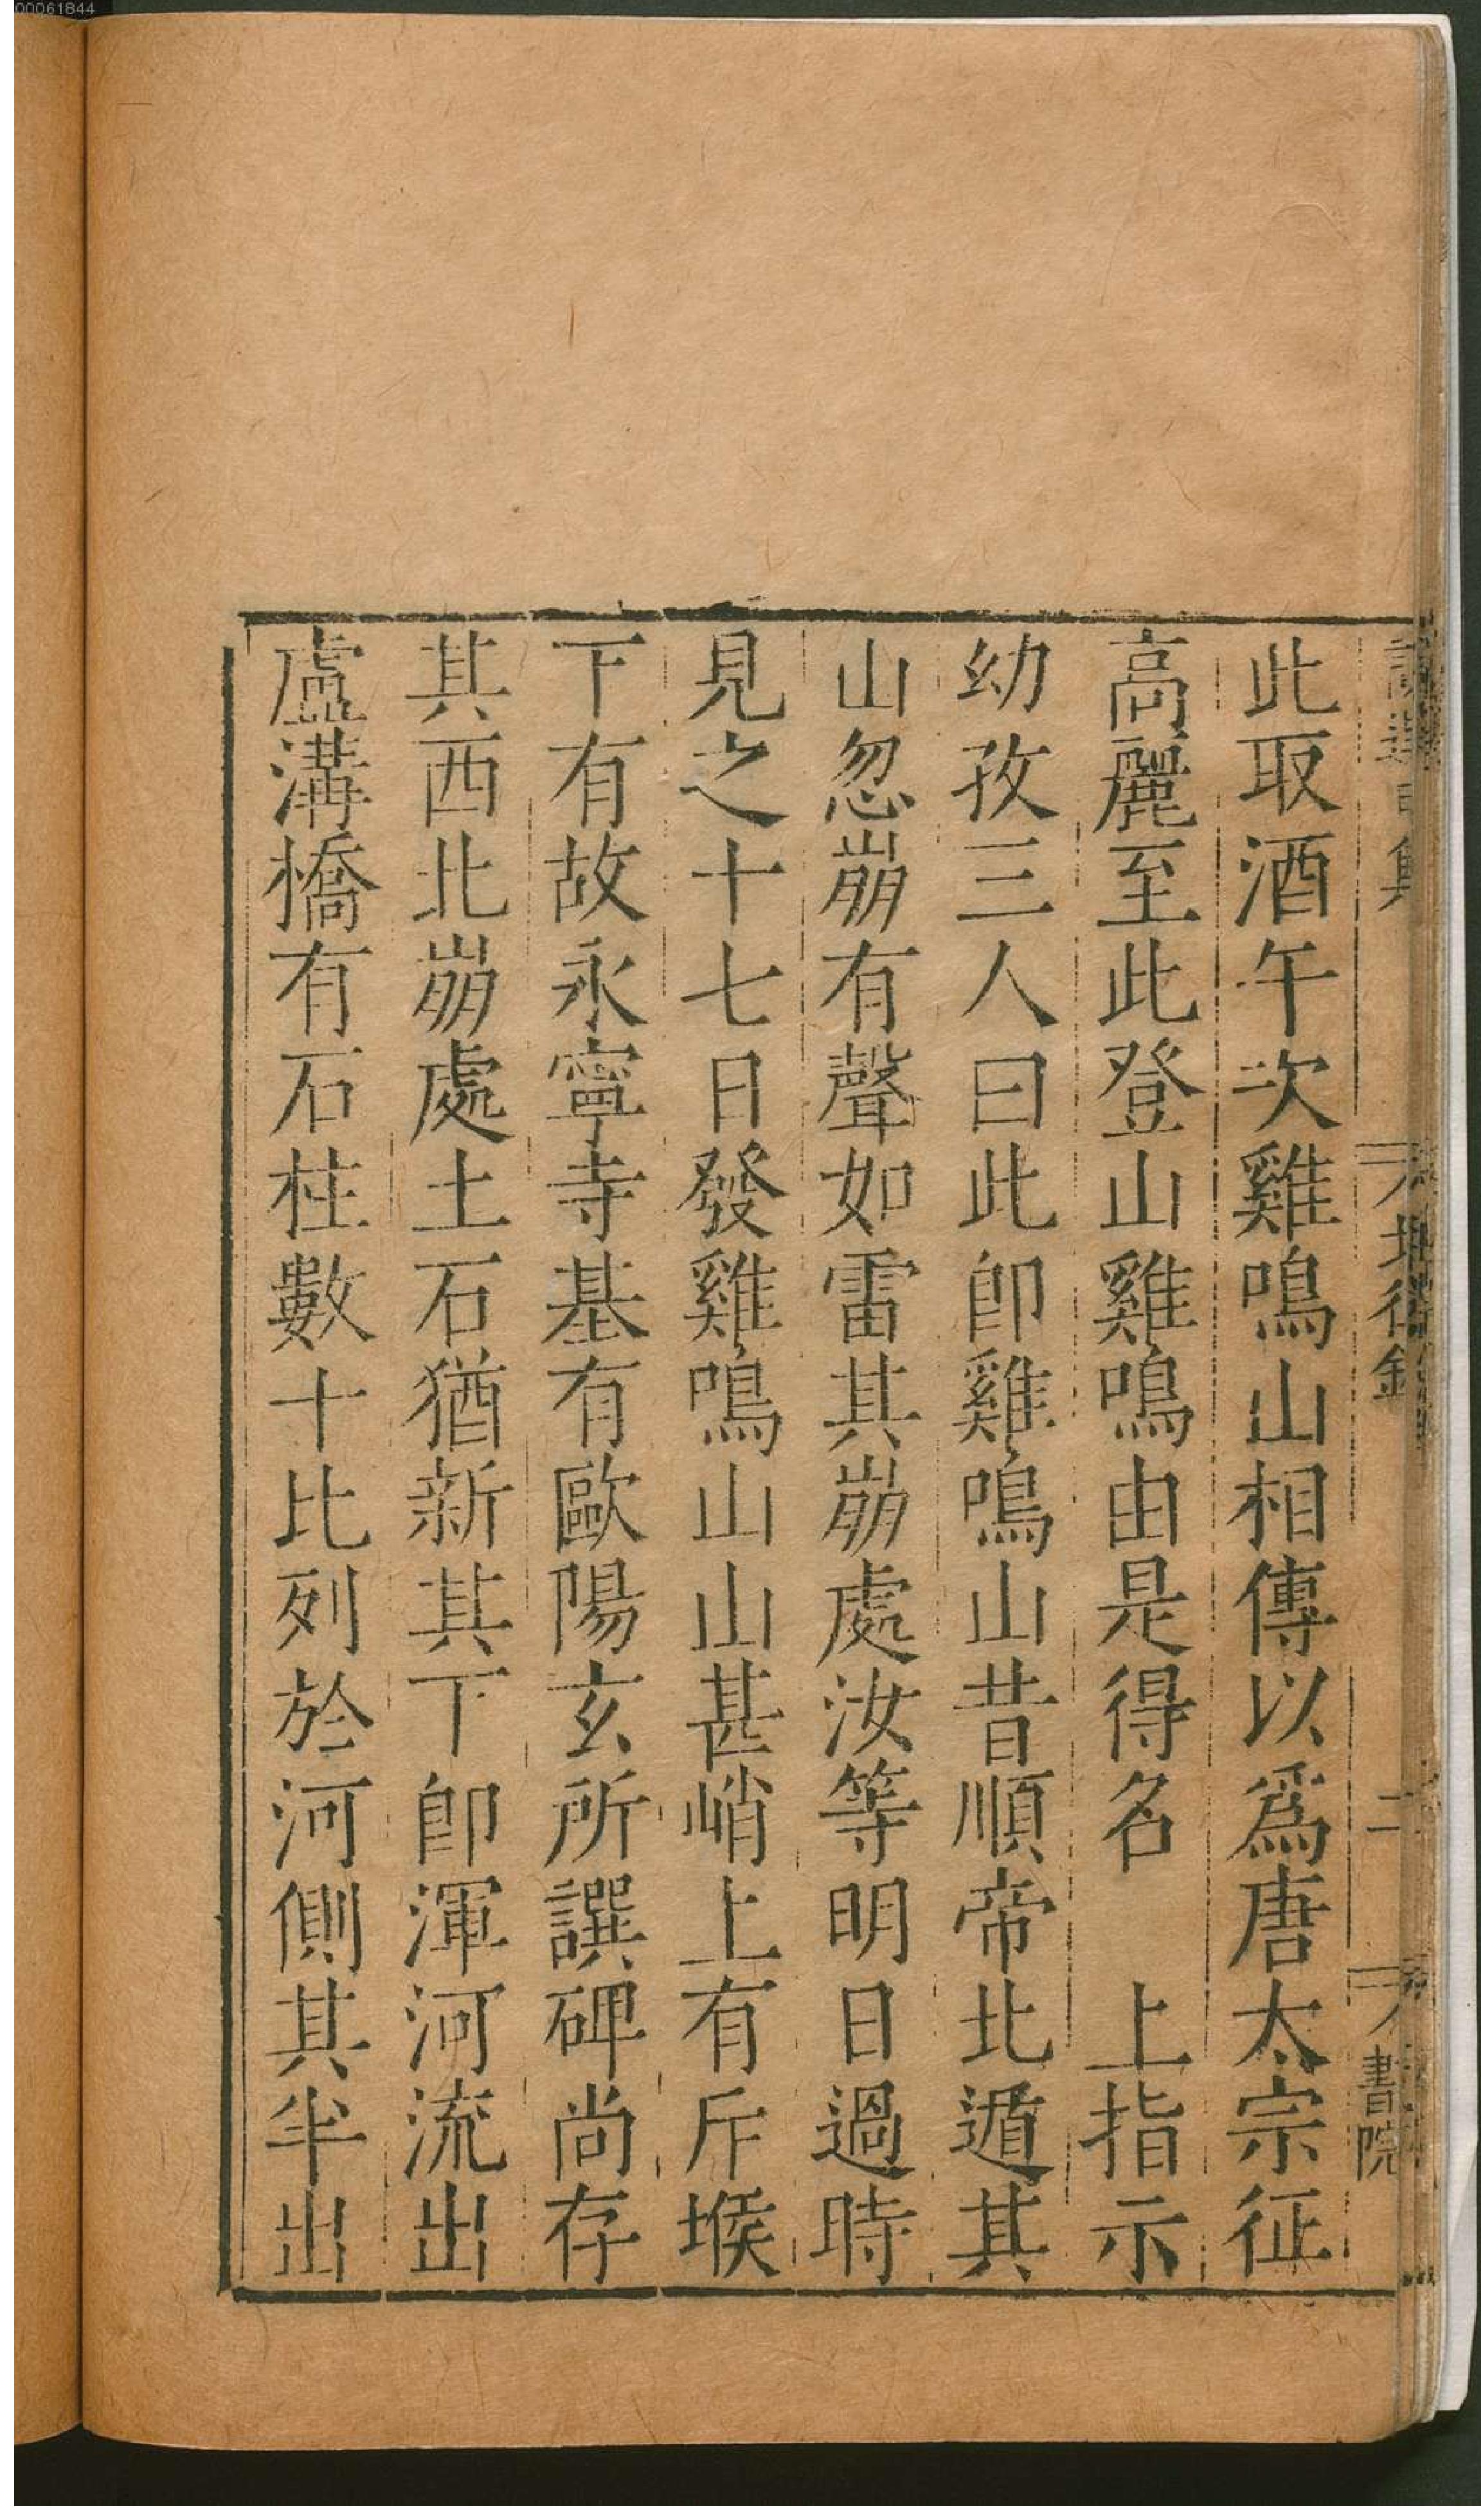 00061844
此取酒午次雞鳴山相傳以爲唐太宗征
高麗至此登山雞鳴由是得名　上指示
幼孜三人曰此卽雞鳴山昔順帝北遁其
山忽崩有聲如雷其崩處汝等明日過時
見之十七日發雞鳴山山甚峭上有斥堠
下有故永寧寺基有歐陽玄所譔碑尚存
其西北崩處土石猶新其下卽渾河流出
盧溝橋有石柱數十比列於河側其半出
二
書院